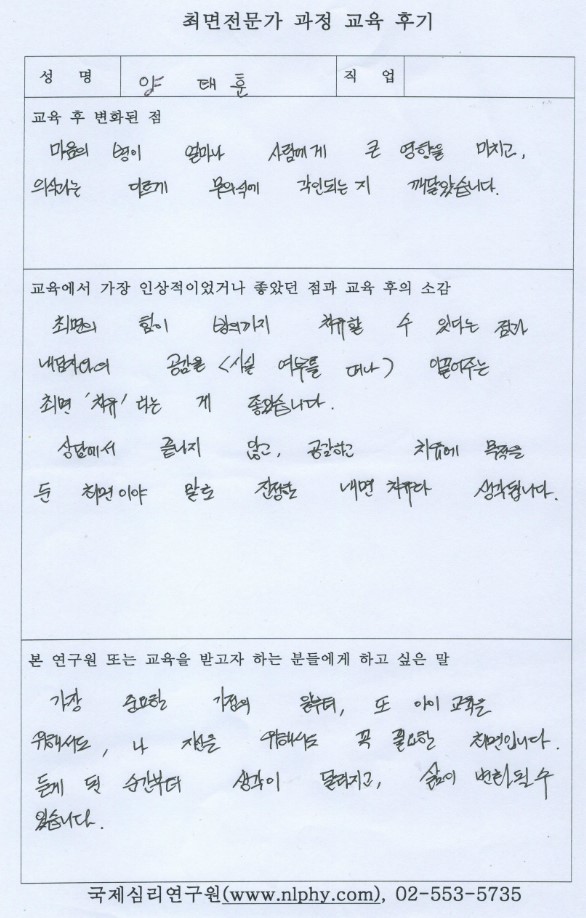 최면전문가 과정 교육 후기
성 명 양 태 훈 직 업
교육 후 변화된 점
마음의 병이 얼마나 사람에게 큰 영향을 미치고,
의사와는 다르게 무의식에 각인되는 지 깨달았습니다.
교육에서 가장 인상적이었거나 좋았던 점과 교육 후의 소감
최면의 힘이 치유할 수 있다는 점과
내담자와의 공감을 <사실 여부를 떠나> 이끌어주는
최면 '치유' 라는 게 좋았습니다.
상담에서 끝나지 않고, 공감하고 치유에 목적을
둔 최면이야 말로 진정한 내면 치유다 생각됩니다.
본 연구원 또는 교육을 받고자 하는 분들에게 하고 싶은 말
가장 중요한 가정의 일부터, 또 아이 교육을
위해서도, 나 자신을 위해서도 꼭 필요한 최면입니다.
듣게 된 순간부터 생각이 달라지고, 삶이 변화될 수
있습니다.
국제심리연구원(www.nlphy.com), 02-553-5735